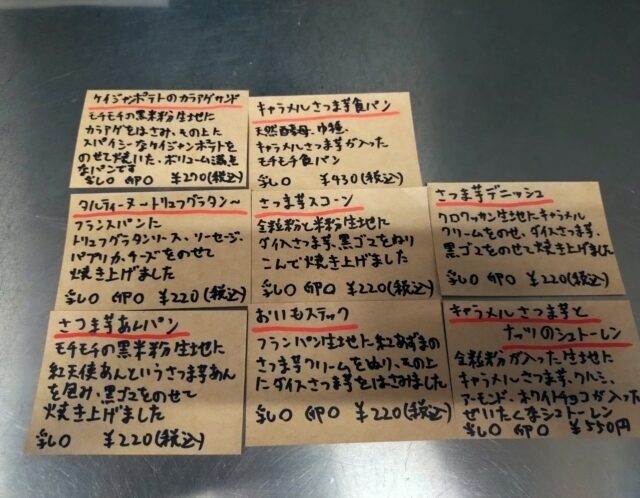 ケイジャンポテトのカラアゲサンド
モチモチの黒米粉生地に
カラアゲをはさみ、その上に
スパイシーなケイジャンポテトを
のせて焼いた、ボリューム満点
なパンです
乳〇 卵〇 ¥270(税込)
キャラメルさつま芋食パン
天然酵母、中種、
キャラメルさつま芋が入った
モチモチ食パン
乳〇 ¥430(税込)
タルティーヌートリュフグラタン〜
フランスパンに
トリュフグラタンソース、ソーセージ、
パプリカ、チーズをのせて
焼き上げました
乳〇 卵〇 ¥220(税込)
さつま芋スコーン
全粒粉と米粉生地に
ダイスさつま芋、黒ゴマをねり
こんで焼き上げました
乳〇 卵〇 ¥220(税込)
さつま芋デニッシュ
クロワッサン生地にキャラメル
クリームをのせ、ダイスさつま芋、
黒ゴマをのせて焼き上げました
乳〇 卵〇 ¥220(税込)
さつま芋あんパン
モチモチの黒米粉生地に
紅天使あんというさつま芋あん
を包み、黒ゴマをのせて
焼き上げました
乳〇 ¥220(税込)
おいもスティック
フランパン生地に紅あずまの
さつま芋クリームをぬり、その上
にダイスさつま芋をはさみました
乳〇 卵〇 ¥220(税込)
キャラメルさつま芋と
ナッツのシュトーレン
全粒粉が入った生地に
キャラメルさつま芋、クルミ、
アーモンド、ホワイトチョコが入った
ぜいたくなシュトーレン
乳〇 卵〇 ¥550円